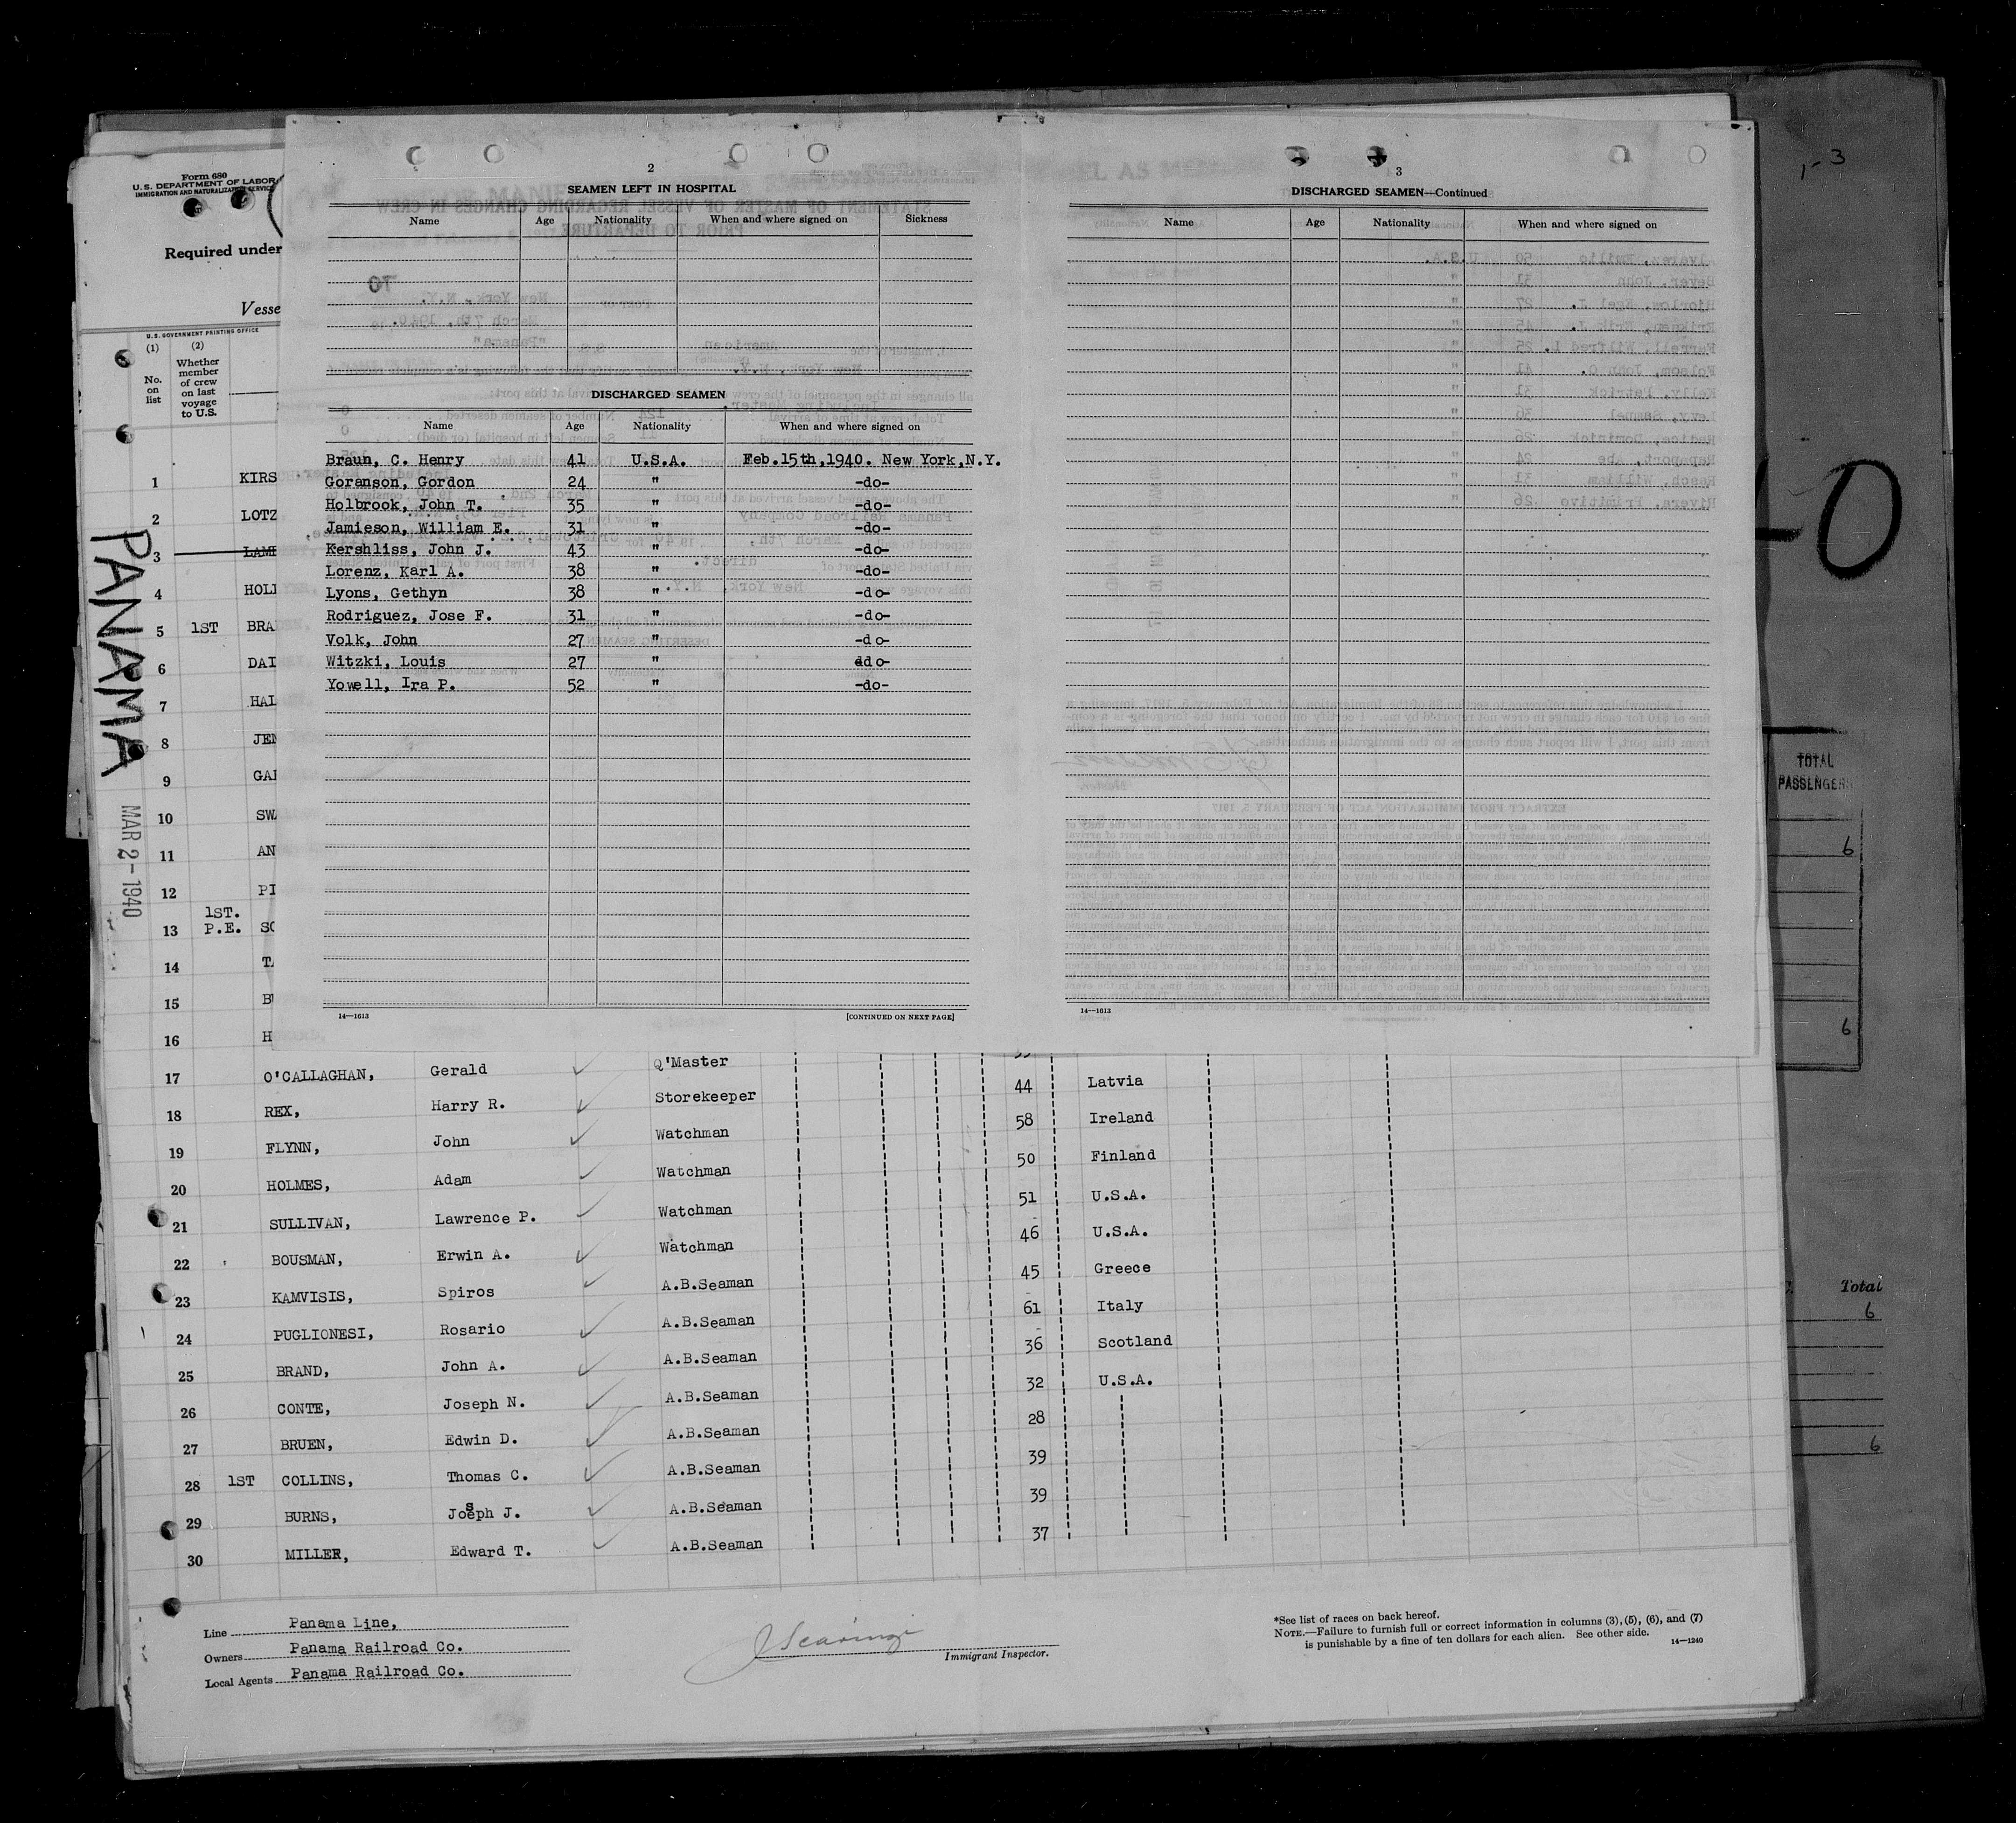 2
SEAMEN LEFT IN HOSPITAL
Name Age Nationality When and where signed on Sickness
DISCHARGED SEAMEN
Name Age Nationality When and where signed on
Braun, C. Henry 41 U.S.A. Feb.15th,1940. New York,N.Y.
Goranson, Gordon 24 " -do-
Holbrook, John T. 35 " -do-
Jamieson, William E. 31 " -do-
Kershliss, John J. 43 " -do-
Lorenz, Karl A. 38 " -do-
Lyons, Gethyn 38 " -do-
Rodriguez, Jose F. 31 " -do-
Volk, John 27 " -do-
Witzki, Louis 27 " ddo-
Yowell, Ira P. 52 " -do-
14—1613 [CONTINUED ON NEXT PAGE]
3
DISCHARGED SEAMEN—Continued
Name Age Nationality When and where signed on
14—1613
1-3
TOTAL
PASSENGERS
6
6
Total
6
6
Form 680
U.S. DEPARTMENT OF LABOR
IMMIGRATION AND NATURALIZATION SERVICE
Required under
Vesse
U.S. GOVERNMENT PRINTING OFFICE
(1) (2)
No. on list
Whether member of crew on last voyage to U.S.
PANAMA
MAR 2-1940
1 KIRS
2 LOTZ
3 LAMB
4 HOLI
5 1ST BRA
6 DAI
7 HAI
8 JEN
9 GAI
10 SWA
11 AN
12 PI
13 1ST. P.E. SC
14 TA
15 BU
16 H
17 O'CALLAGHAN, Gerald Q'Master 44 Latvia
18 REX, Harry R. Storekeeper 58 Ireland
19 FLYNN, John Watchman 50 Finland
20 HOLMES, Adam Watchman 51 U.S.A.
21 SULLIVAN, Lawrence P. Watchman 46 U.S.A.
22 BOUSMAN, Erwin A. Watchman 45 Greece
23 KAMVISIS, Spiros A.B.Seaman 61 Italy
24 PUGLIONESI, Rosario A.B.Seaman 36 Scotland
25 BRAND, John A. A.B.Seaman 32 U.S.A.
26 CONTE, Joseph N. A.B.Seaman 28
27 BRUEN, Edwin D. A.B.Seaman 39
28 1ST COLLINS, Thomas C. A.B.Seaman 39
29 BURNS, Joseph J. A.B.Seaman 37
30 MILLER, Edward T. A.B.Seaman
Line Panama Line,
Owners Panama Railroad Co.
Local Agents Panama Railroad Co.
Immigrant Inspector.
*See list of races on back hereof.
NOTE.—Failure to furnish full or correct information in columns (3), (5), (6), and (7)
is punishable by a fine of ten dollars for each alien. See other side.
14—1240